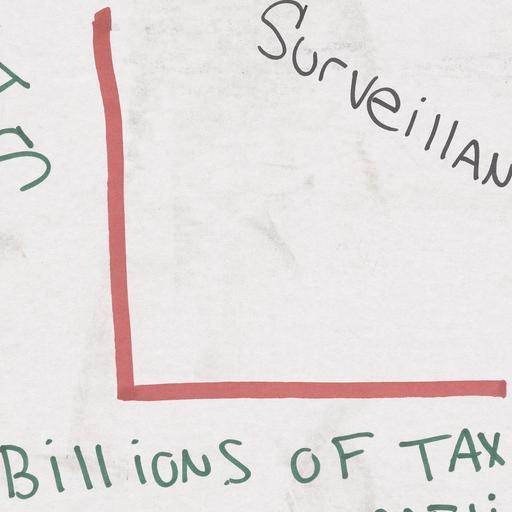 Surveillan
Billions OF TAX